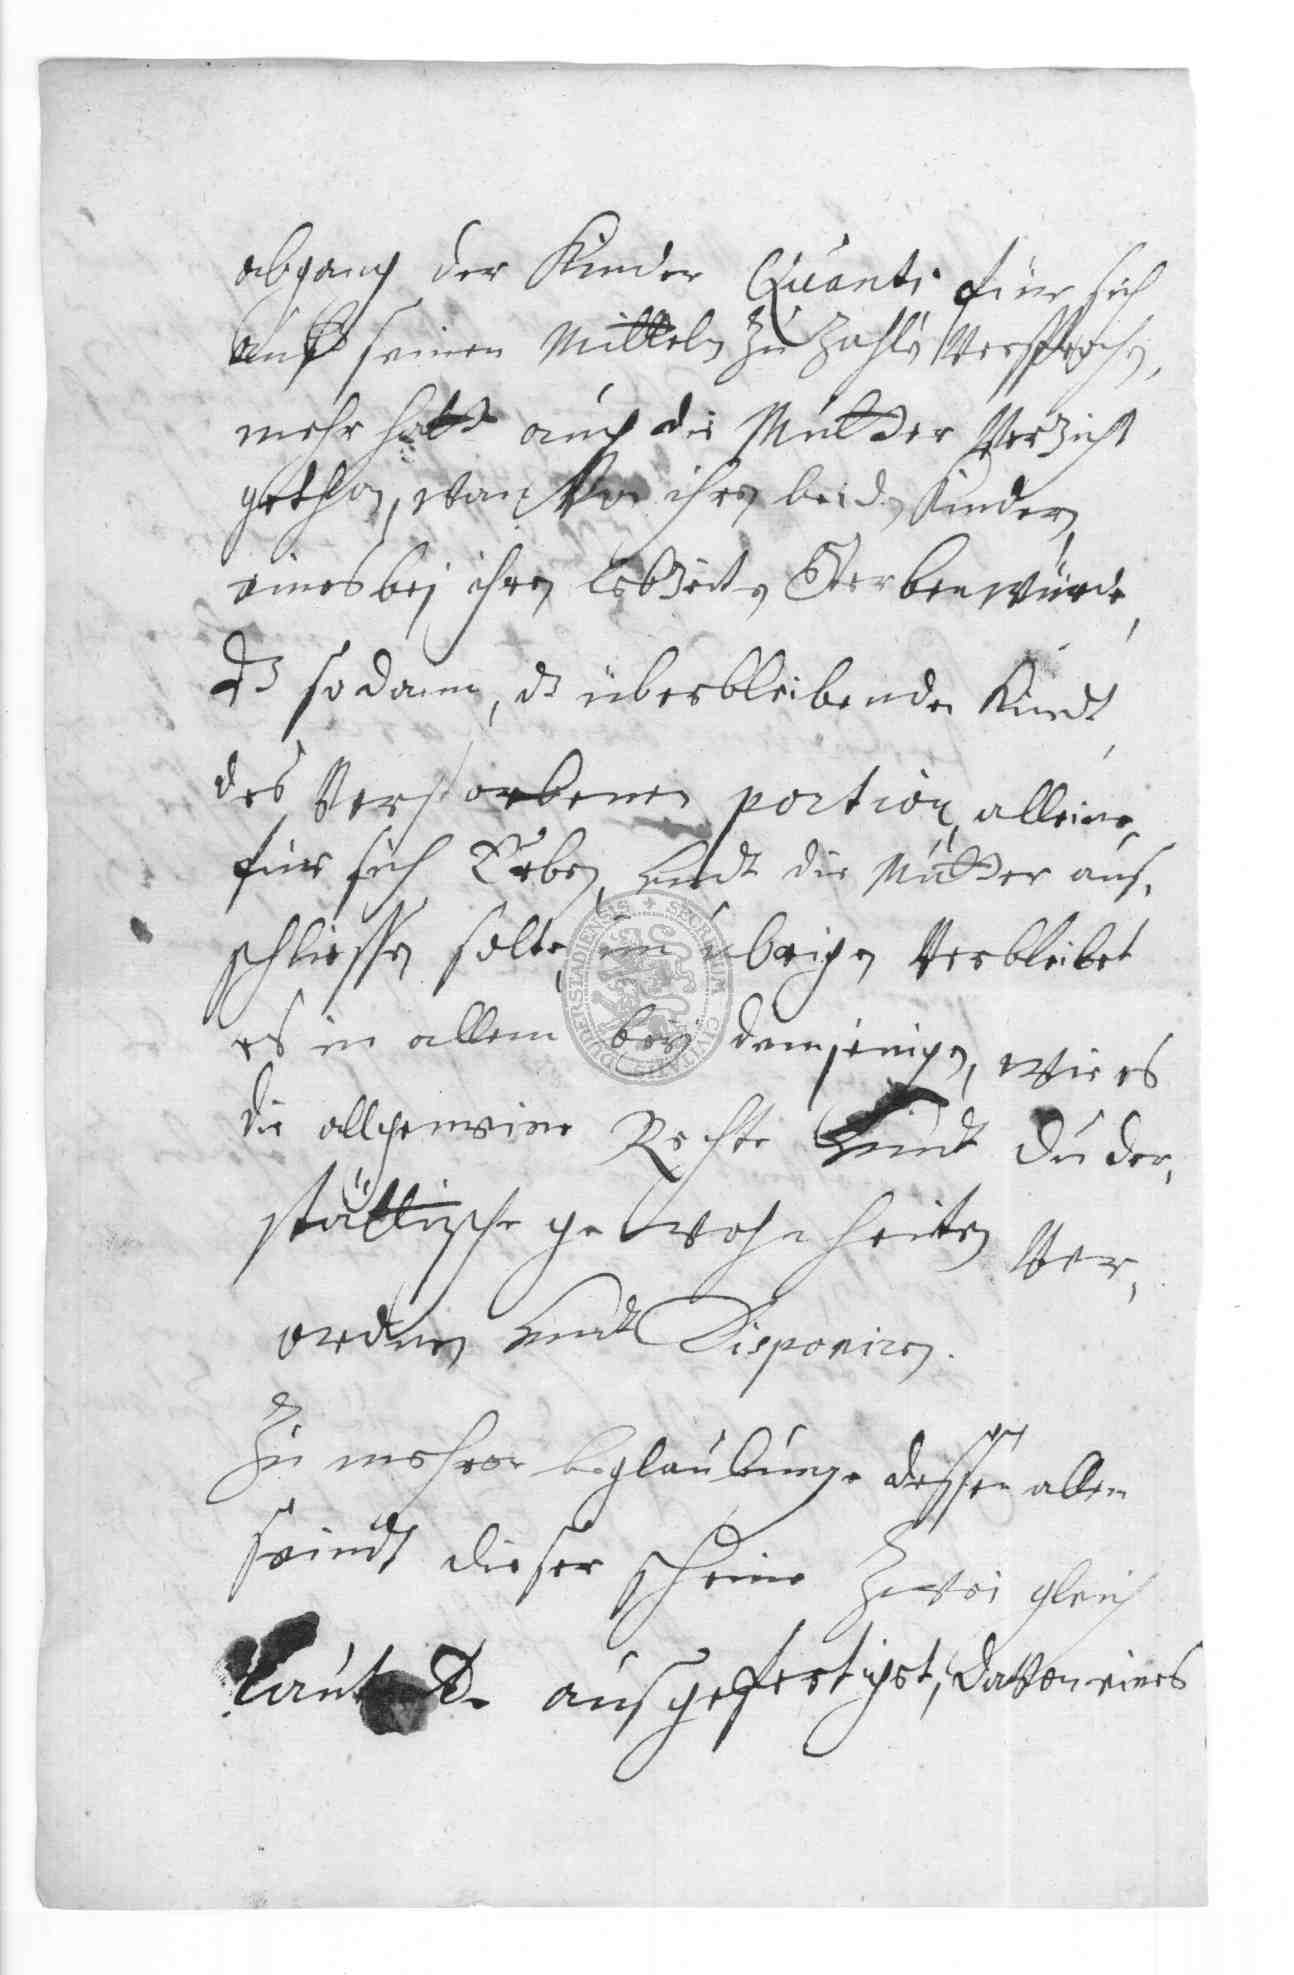 abgang der Kinder Quanti für sich
auß seinen Mitteln zu zahlen Versprochen,
mehr hatt auch die Mutter Verzicht
gethan, wan Von ihren beiden Kindern
eines bej ihren lebzeiten Sterben würde,
dz so dann, dz überbleibende Kindt
des Verstorbenen portion alleine
für sich Erben, undt die Mutter aus,
schliessen solte, im übrigen Verbleibet
es in allem bey demjenigen, wie es
die allgemeine Rechte undt Duder,
stättische gewohnheiten Ver,
ordnen undt Disponiren.
Zu mehrer beglaubunge dessen allen
seindt dieser scheine zwei gleich
lautende ausgefertiget, davon eines
SECRETUM CIVITATIS DUDERSTADIENSIS